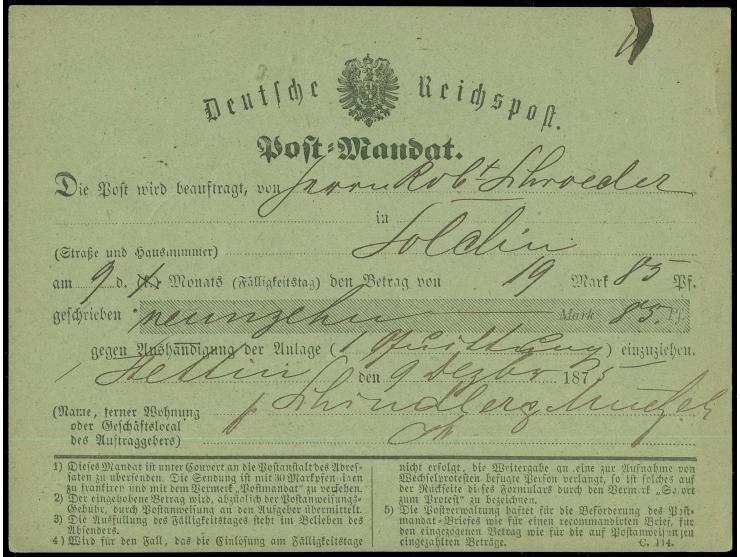 Deutsche Reichspost.
Post-Mandat.
Die Post wird beauftragt, von Herrn Rob^t Schroeder
in
(Straße und Hausnummer) Soldin
am 9 d. Monats (Fälligkeitstag) den Betrag von 19 Mark 85 Pf.
geschrieben neunzehn Mark 85. Pf.
gegen Aushändigung der Anlage (1 Quittung) einzuziehen.
Stettin den 9 Dezbr 1875
(Name, ferner Wohnung
oder Geschäftslocal
des Auftraggebers) Schindler &
1) Dieses Mandat ist unter Couvert an die Postanstalt des Adres-
saten zu übersenden. Die Sendung ist mit 30 Markpfennigen
zu frankiren und mit dem Vermerk „Postmandat" zu versehen.
2) Der eingehobene Betrag wird, abzüglich der Postanweisungs-
Gebühr, durch Postanweisung an den Aufgeber übermittelt.
3) Die Ausfüllung des Fälligkeitstages steht im Belieben des
Absenders.
4) Wird für den Fall, daß die Einlösung am Fälligkeitstage
nicht erfolgt, die Weitergabe an eine zur Aufnahme von
Wechselprotesten befugte Person verlangt, so ist solches auf
der Rückseite dieses Formulars durch den Vermerk „Sofort
zum Protest" zu bezeichnen.
5) Die Postverwaltung haftet für die Beförderung des Post-
mandat-Briefes wie für einen recommandirten Brief, für
den eingezogenen Betrag wie für die auf Postanweisungen
eingezahlten Beträge. C. 114.